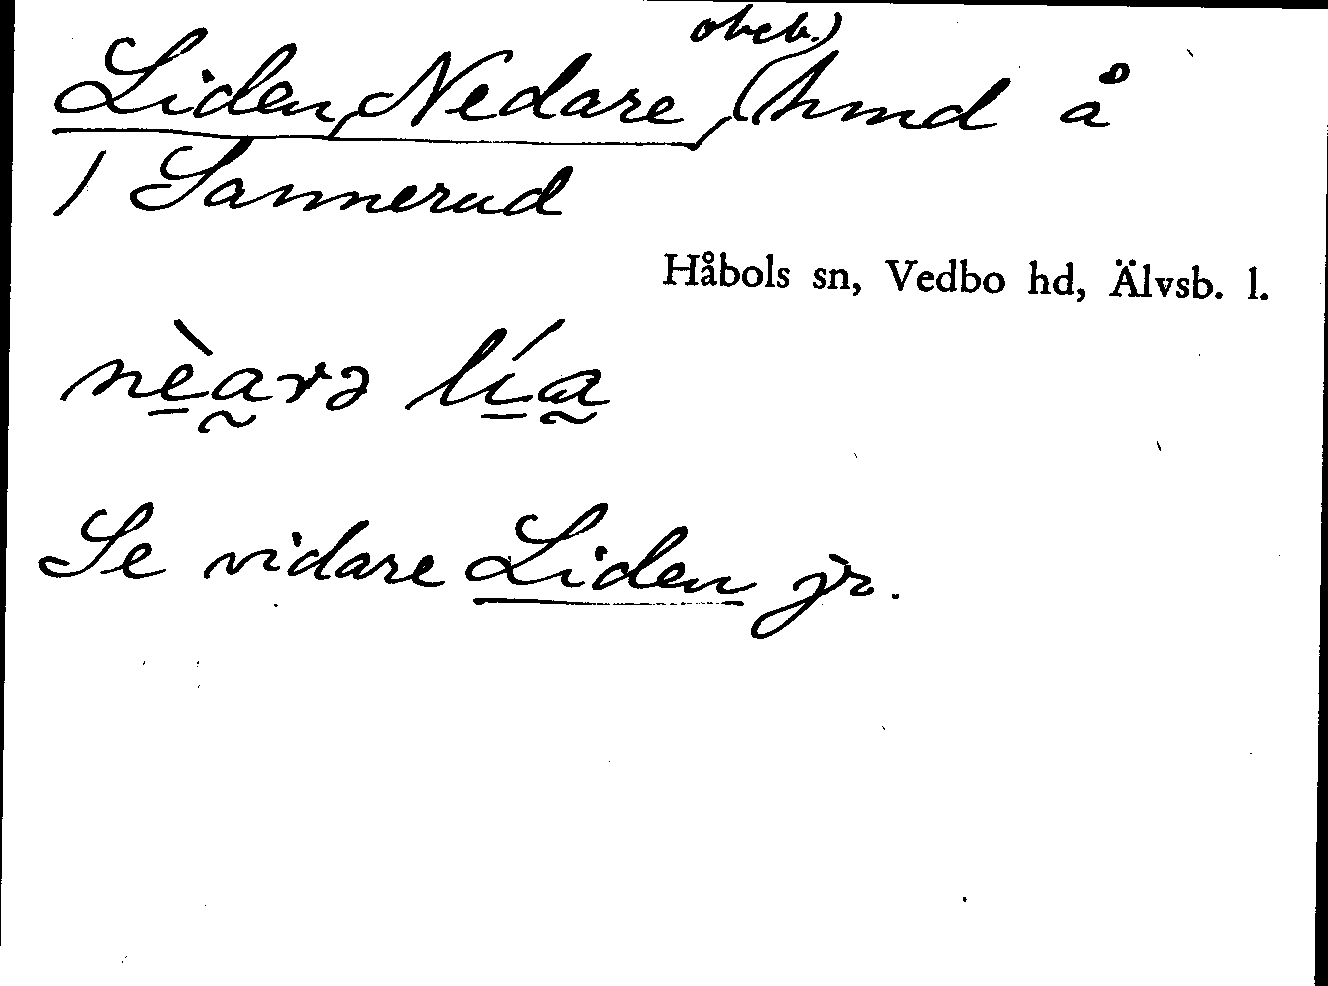 obeb.)
Liden, Nedare, (hmd å
1 Sannerud
Håbols sn, Vedbo hd, Älvsb. l.
nèarə lía
Se vidare Liden jr.